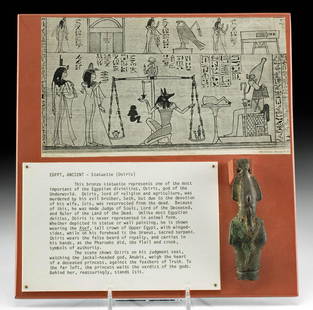 EGYPT, ANCIENT - Statuette (Osiris)
This bronze statuette represents one of the most
important of the Egyptian divinities, Osiris, god of the
Underworld. Osiris, lord of religion and agriculture, was
murdered by his evil brother, Seth, but due to the devotion
of his wife, Isis, was resurrected from the dead. Because
of this, he was made Judge of Souls, Lord of the Deceased,
and Ruler of the Land of the Dead. Unlike most Egyptian
deities, Osiris is never represented in animal form.
Whether depicted in statue or wall painting, he is shown
wearing the Atef, tall crown of Upper Egypt, with winged-
sides, while on his forehead is the Uraeus, sacred serpent.
Osiris wears the false beard of royalty, and carries in
his hands, as the Pharaohs did, the flail and crook,
symbols of authority.
The scene shows Osiris on his judgment seat,
watching the jackal-headed god, Anubis, weigh the heart
of a deceased princess, against the feathers of Truth. To
the far left, the princess waits the verdict of the gods.
Behind her, reassuringly, stands Isis.